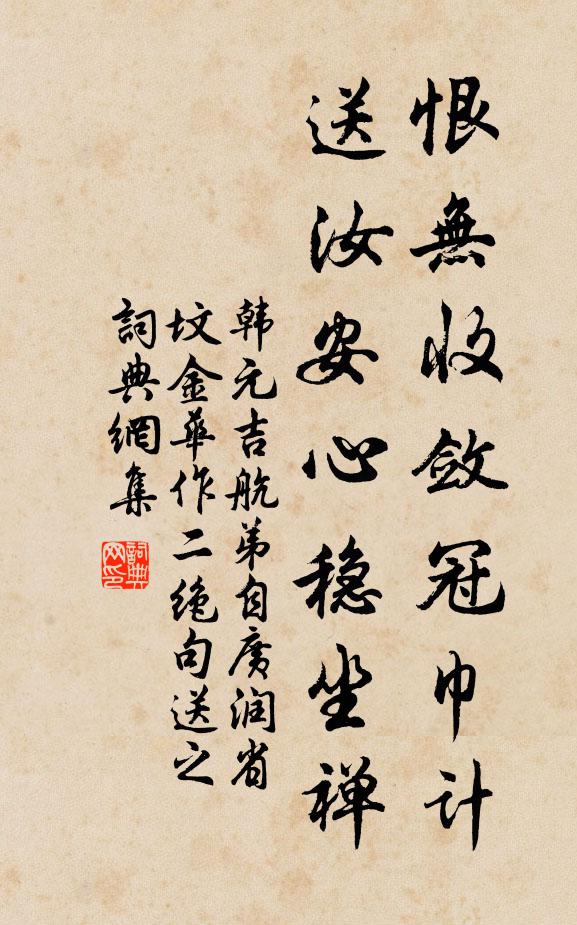 恨無收斂冠巾計
送汝安心穩坐禪
韩元吉航弟自廣润省
坟金華作二绝句送之
詞典網集
詞典網印